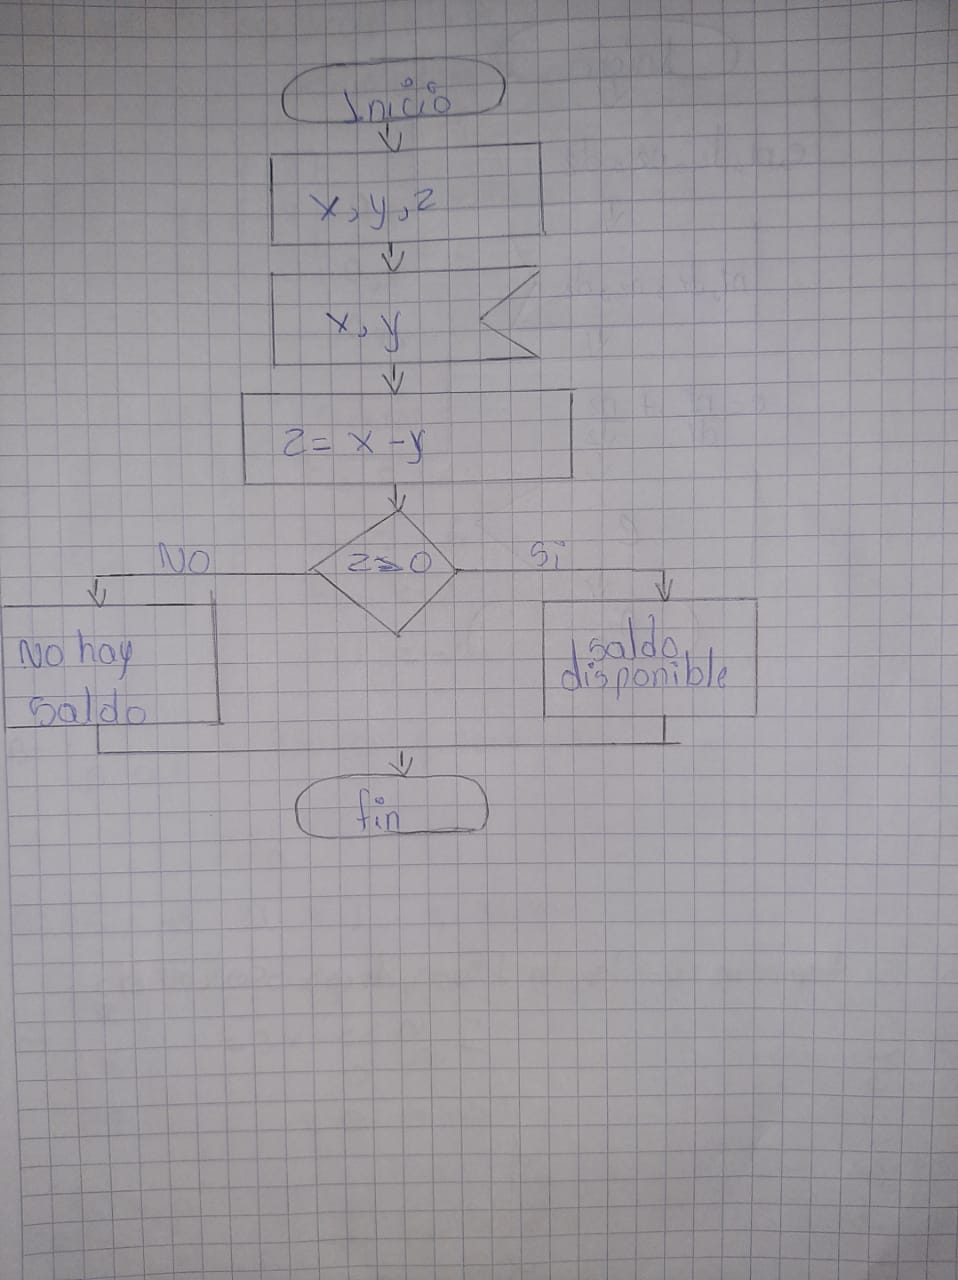 Inicio
x, y, z
x, y
z = x - y
z > 0
NO
Si
No hay
saldo
saldo
disponible
fin